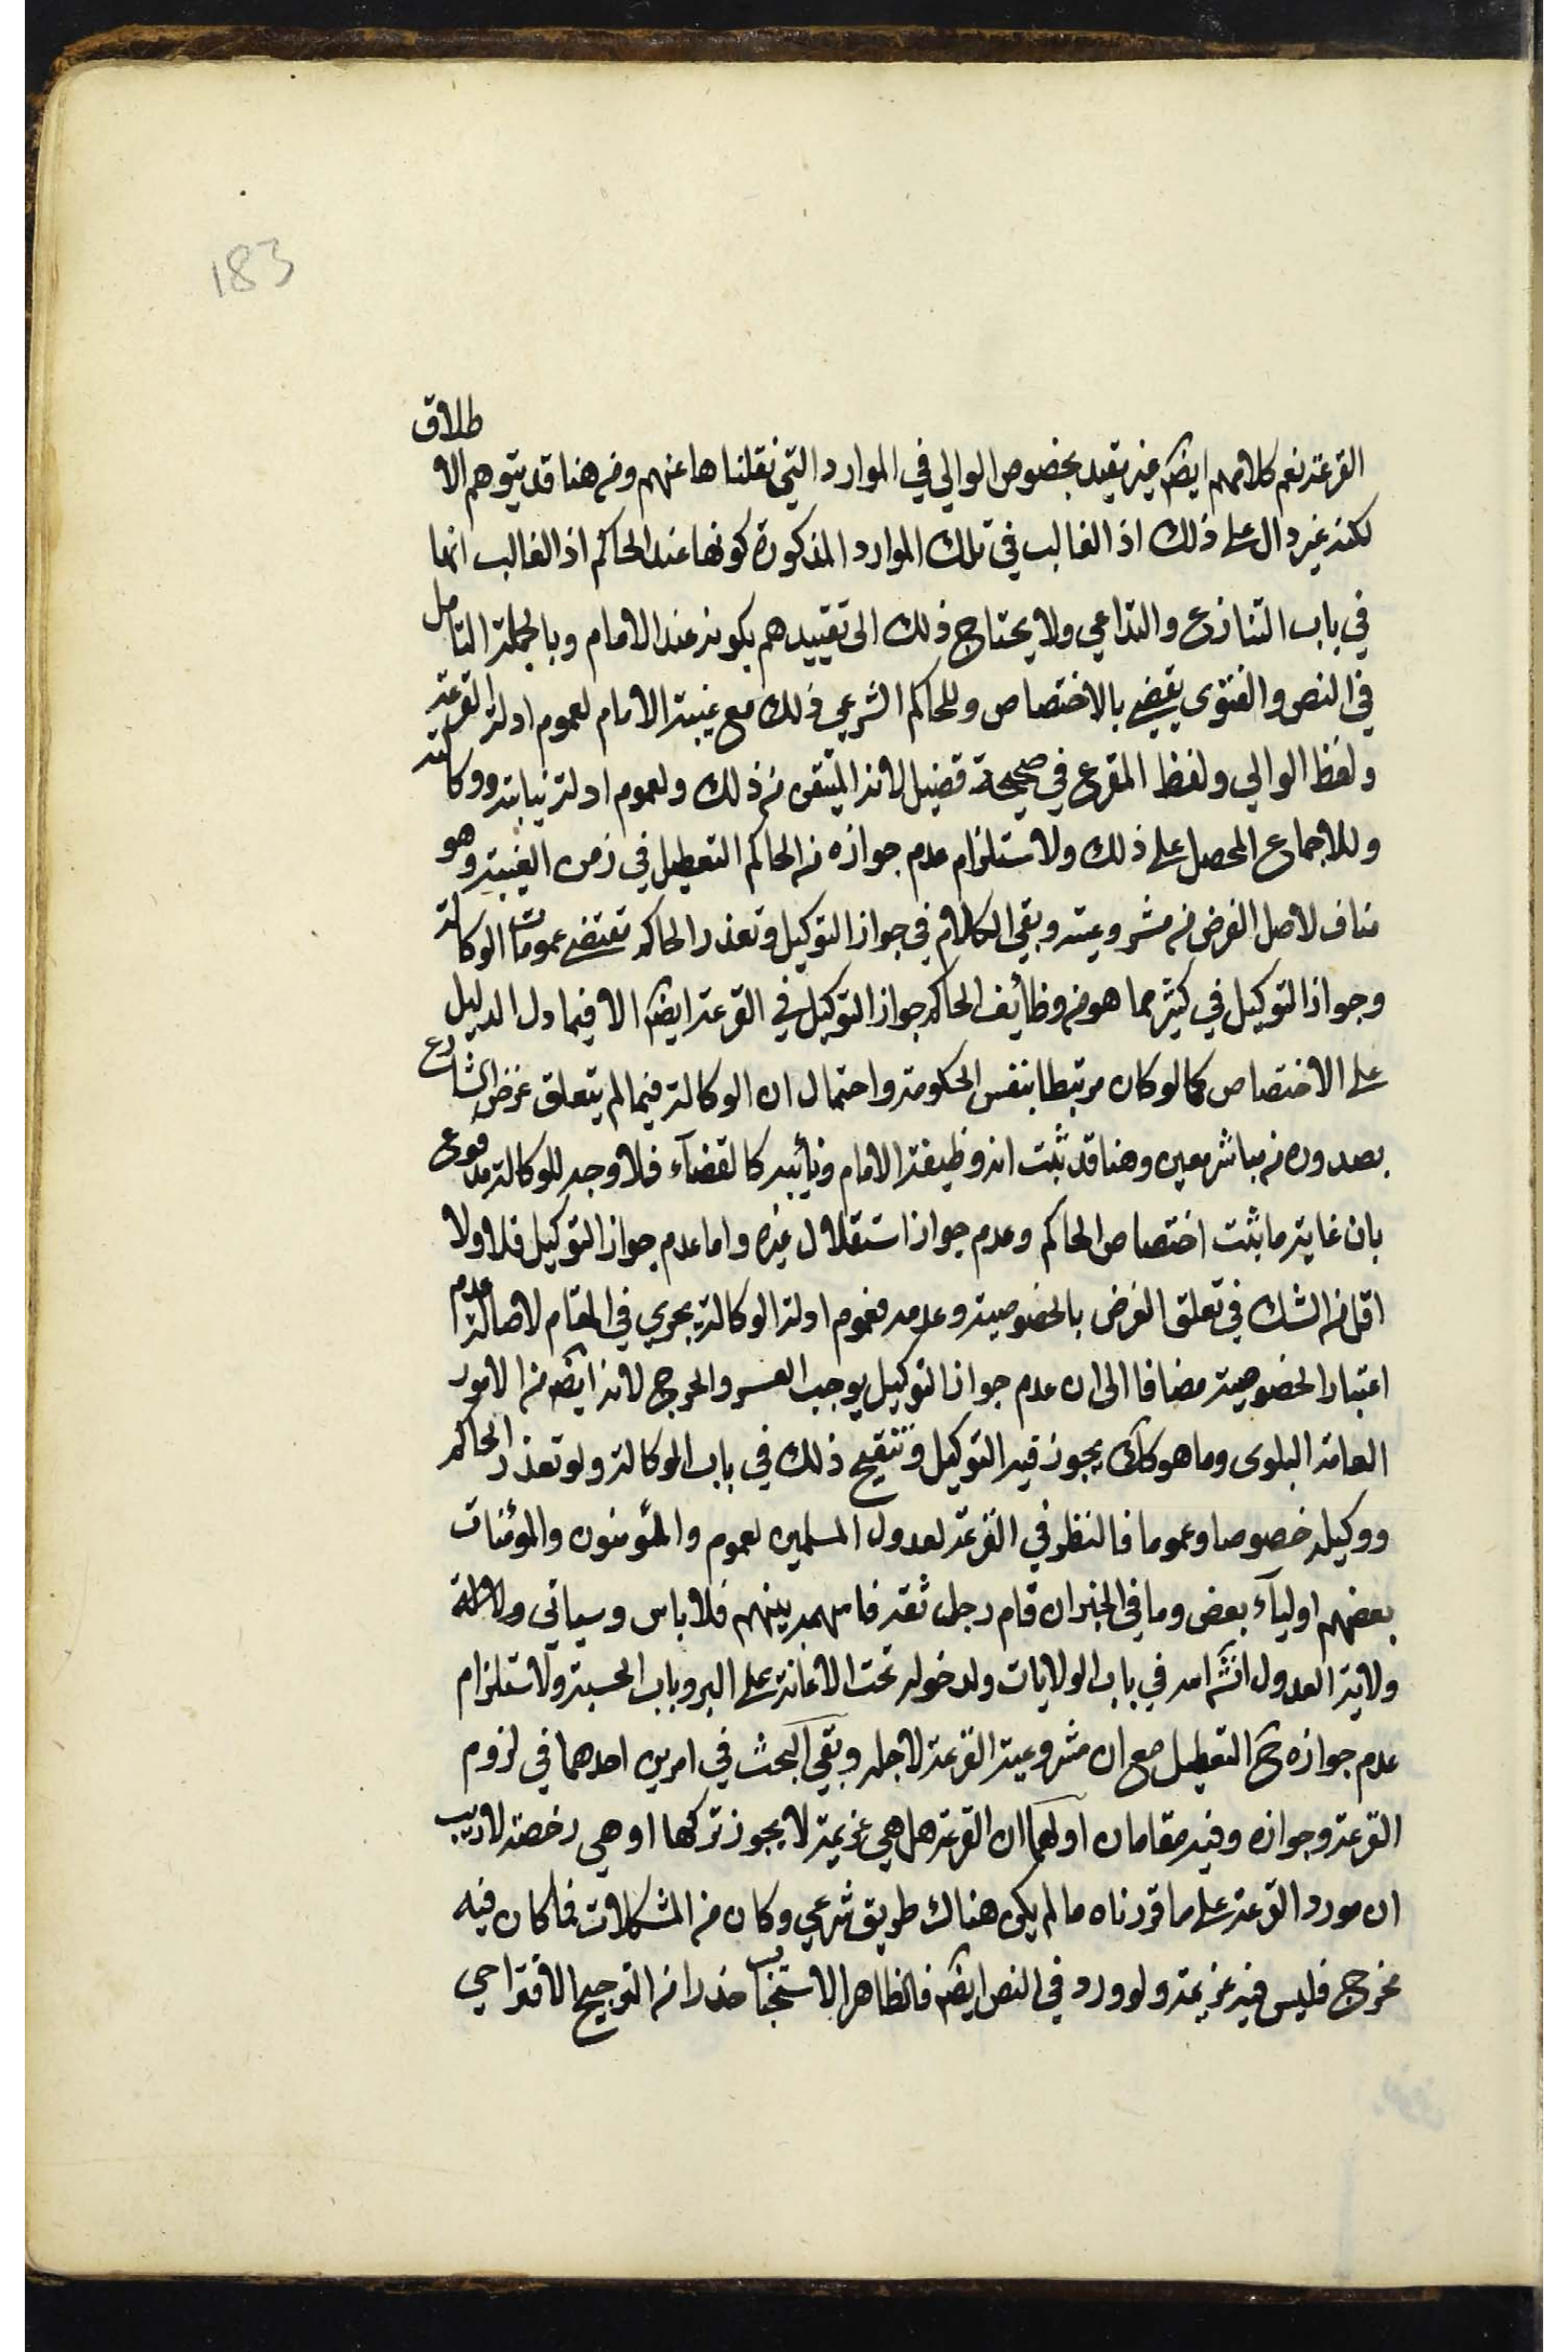 183
القرعة نعم كلامهم ايضا غير مقيد بخصوص الوالي في الموارد التي نقلناها عنهم ومن هنا قد يتوهم الاطلاق
لكنه غير دال على ذلك اذ الغالب في تلك الموارد المذكورة كونها عند الحاكم اذ الغالب انها
في باب التنازع والتداعي ولا يحتاج ذلك الى تقييدهم بكونه عند الامام وبالجملة التامل
في النص والفتوى يقضي بالاختصاص وللحاكم الشرعي ذلك مع غيبة الامام لعموم ادلة القرعة
ولفظ الوالي ولفظ المقرع في صحيحة فضيل لانه المتيقن من ذلك ولعموم ادلة نيابته ووكالته
وللاجماع المحصل على ذلك ولاستلزام عدم جوازه من الحاكم التعطيل في زمن الغيبة وهو
مناف لاصل الغرض من مشروعيته وبقي الكلام في جواز التوكيل وتعذر الحاكم تقتضي عمومات الوكالة
وجواز التوكيل في كثير مما هو من وظائف الحاكم جواز التوكيل في القرعة ايضا الا فيما دل الدليل
على الاختصاص كما لو كان مرتبطا بنفس الحكومة واحتمال ان الوكالة فيما لم يتعلق غرض الشارع
بصدوره من مباشر معين وهنا قد ثبت انه وظيفة الامام ونائبه كالقضاء فلا وجه للوكالة مدفوع
بان غاية ما ثبت اختصاص الحاكم وعدم جواز استقلال غيره واما عدم جواز التوكيل فلا ولا
اقل من الشك في تعلق الغرض بالخصوصية وعدمه فعموم ادلة الوكالة يجري في المقام لاصالة عدم
اعتبار الخصوصية مضافا الى ان عدم جواز التوكيل يوجب العسر والحرج لانه ايضا من الامور
العامة البلوى وما هو كك يجوز فيه التوكيل وتنقيح ذلك في باب الوكالة ولو تعذر الحاكم
ووكيله خصوصا وعموما فالنظر في القرعة لعدول المسلمين لعموم والمؤمنون والمؤمنات
بعضهم اولياء بعض وما في الخبر ان قام رجل ثقة قاسمهم بينهم فلا باس وسياتي
ولاية العدول انشاء الله في باب الولايات ولدخوله تحت الاعانة على البر وباب الحسبة ولاستلزام
عدم جوازه ح التعطيل مع ان مشروعية القرعة لاجله وبقي البحث في امرين احدهما في لزوم
القرعة وجوازه وفيه مقامان اولهما ان القرعة هل هي عزيمة لا يجوز تركها او هي رخصة لا ريب
ان مورد القرعة على ما قررناه ما لم يكن هناك طريق شرعي وكان من المشكلات فما كان فيه
مخرج فليس فيه عزيمة ولو ورد في النص ايضا فالظاهر الاستحباب حذرا من الترجيح الاقتراحي